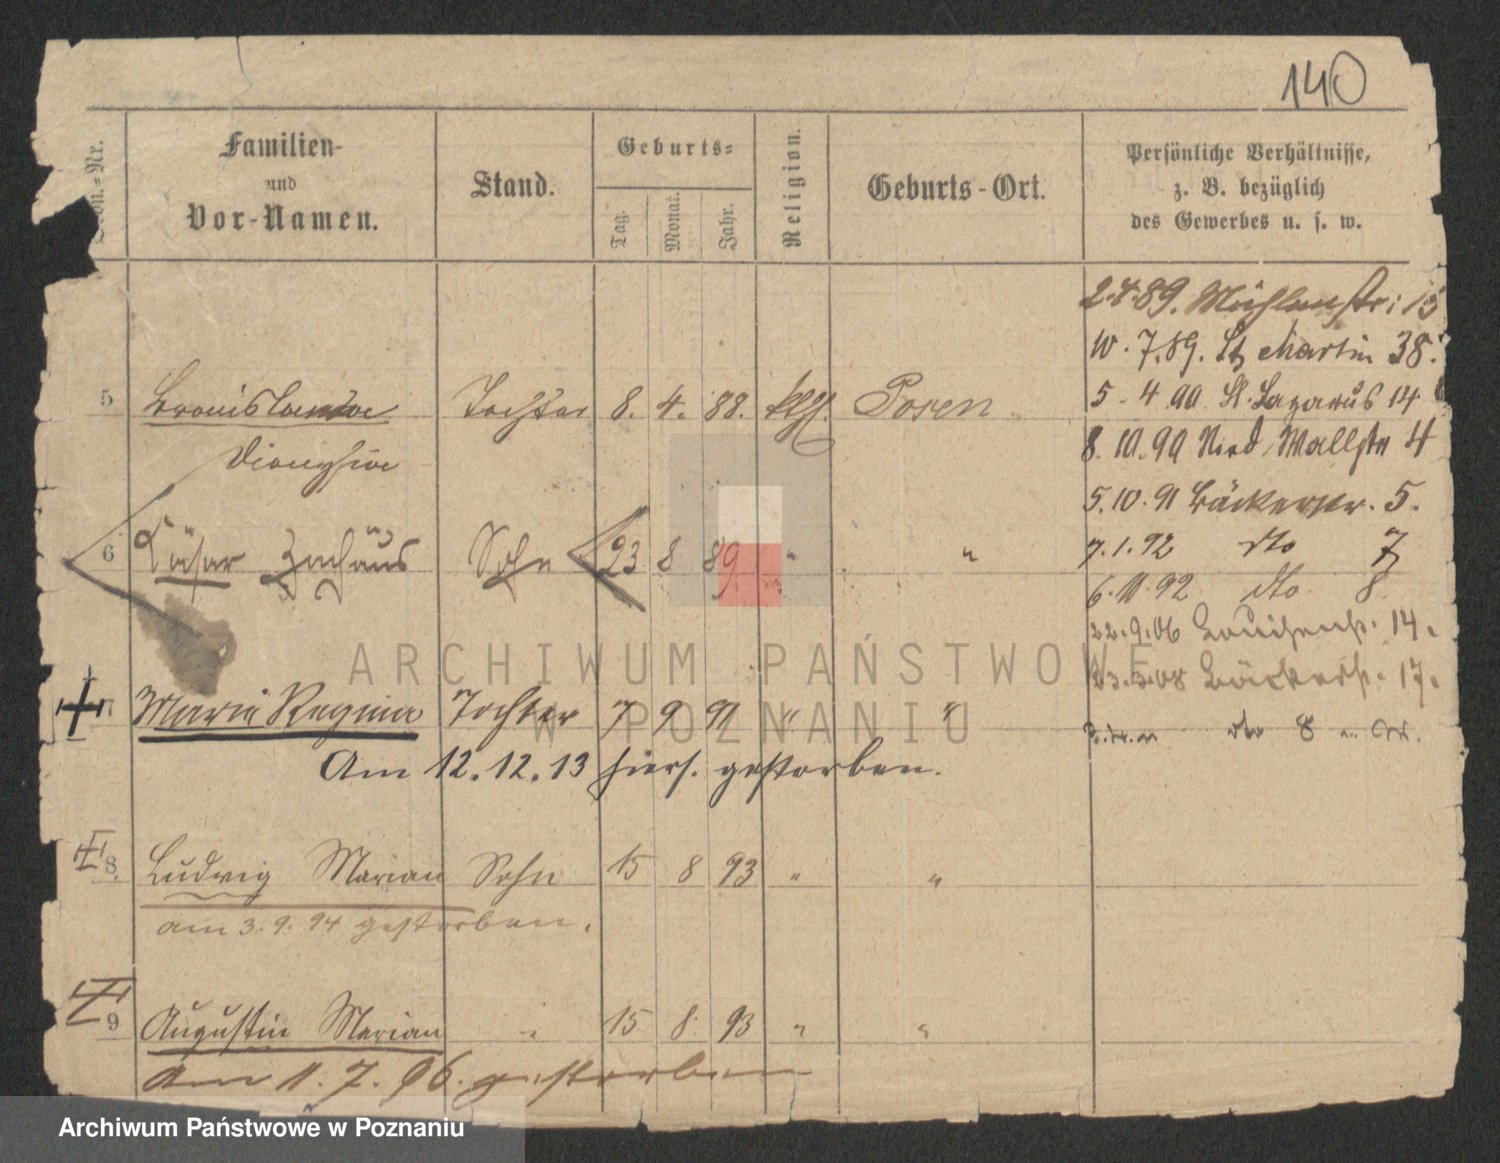 140
Con.-Nr.
Familien-
und
Vor-Namen.
Stand.
Geburts-
Tag.
Monat.
Jahr.
Religion.
Geburts-Ort.
Persönliche Verhältnisse,
z. B. bezüglich
des Gewerbes u. s. w.
2.4.89. Mühlenstr. 15
10.7.89. St Martin 38.
5.4.90 St. Lazarus 14
5 Bronislawa Tochter 8. 4. 88. kth. Posen
Dionysia
8.10.90 Wallstr 4
5.10.91 Bäckerstr. 5.
6 Cäsar Zachäus Sohn 23 8 89 " "
7.1.92 dto 7
6.11.92 dto. 8.
22.9.06 Louisenstr. 14.
Bäckerstr. 17.
7 Marie Regina Tochter 7 9 91 " "
dto 8
Am 12.12.13 hiers. gestorben.
8. Ludwig Marian Sohn 15 8 93 " "
am 3.9.94 gestorben.
9 Augustin Marian " 15 8. 93 " "
Am 11.7.96. gestorben
ARCHIWUM PAŃSTWOWE
W POZNANIU
Archiwum Państwowe w Poznaniu